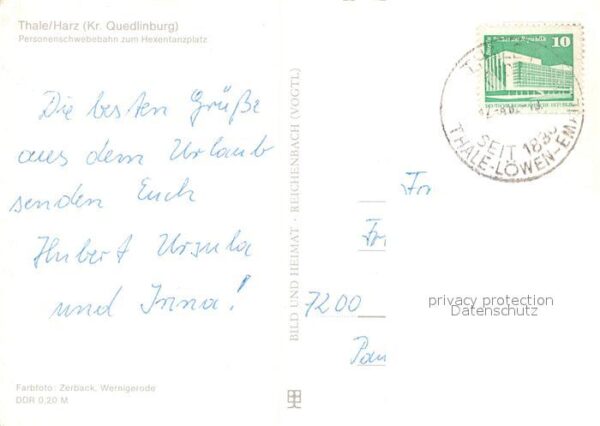 Thale/Harz (Kr. Quedlinburg)
Personenschwebebahn zum Hexentanzplatz
Die besten Grüße
aus dem Urlaub
senden Euch
Hubert Ursula
und Irina!
Farbfoto: Zerback, Wernigerode
DDR 0,20 M
BILD UND HEIMAT · REICHENBACH (VOGTL)
10
SEIT 1835
THALE-LÖWEN-EMAIL
Fr
Fr
7200
privacy protection
Datenschutz